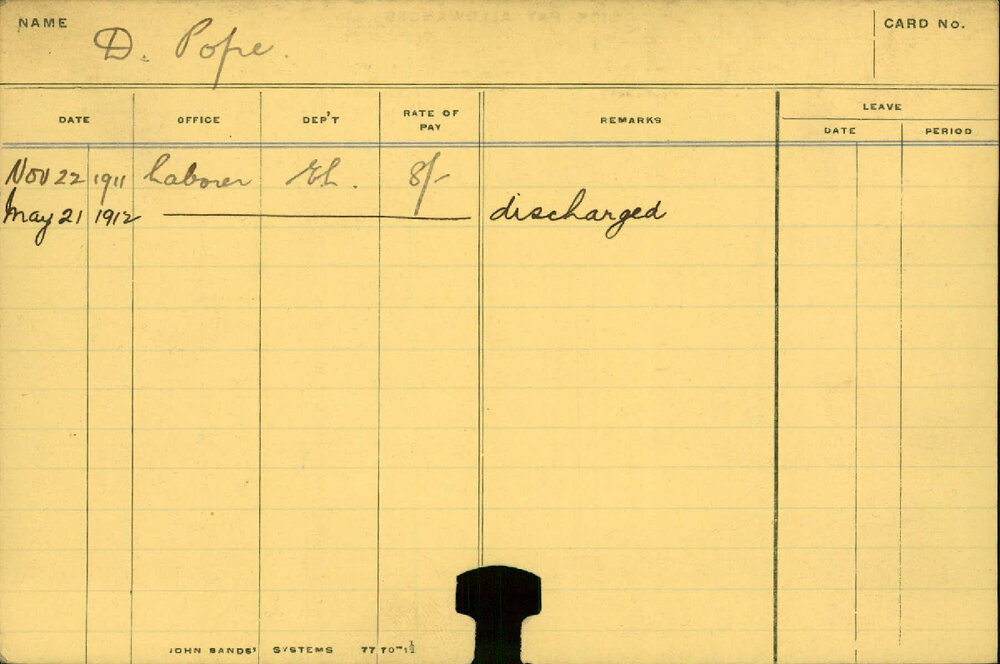 NAME D. Pope. CARD No.
DATE OFFICE DEP'T RATE OF PAY REMARKS LEAVE
DATE PERIOD
Nov 22 1911 Laborer El. 8/-
May 21 1912 discharged
JOHN SANDS' SYSTEMS 77